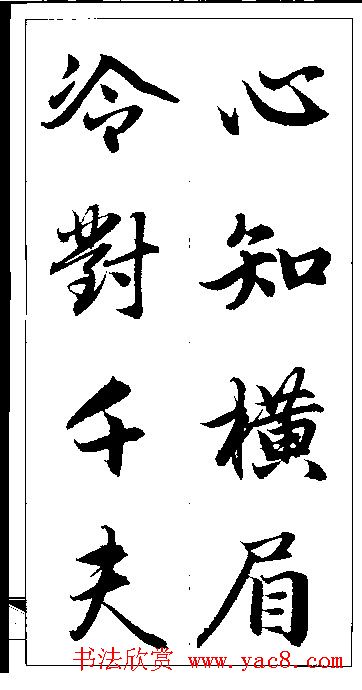 心知橫眉
冷對千夫
书法欣赏 www.yac8.com